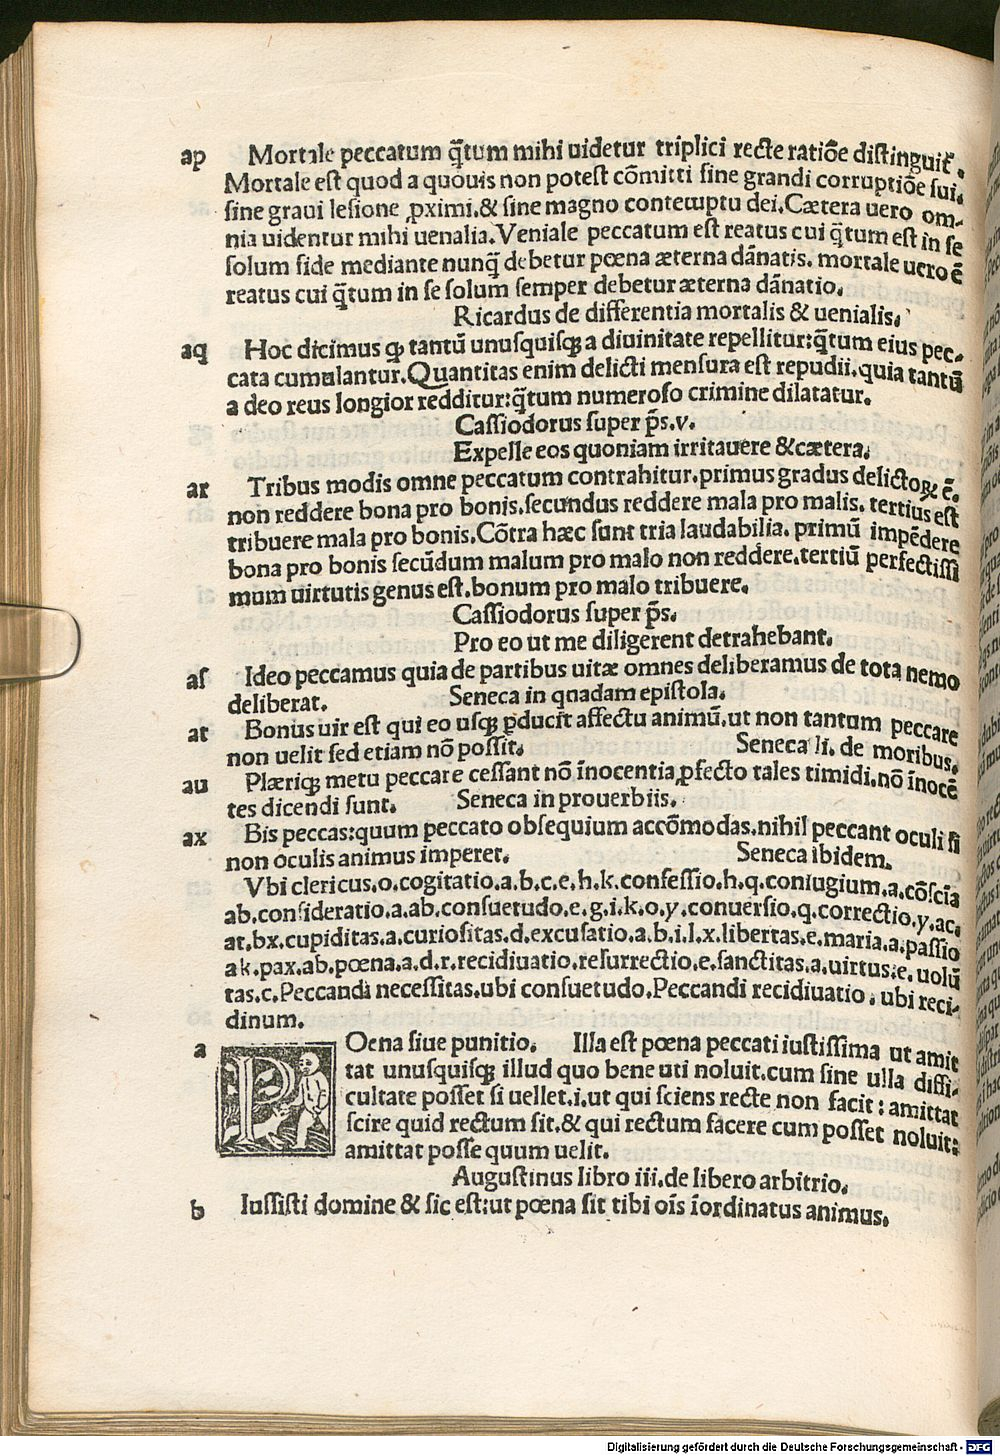 ap Mortale peccatum q̃tum mihi uidetur triplici recte ratiōe distinguit᷑.
Mortale est quod a quouis non potest cōmitti sine grandi corruptiōe sui,
sine graui lesione ꝓximi.& sine magno contewptu dei.Cætera uero om-
nia uidentur mihi uenalia.Veniale peccatum est reatus cui q̃tum est in se
solum fide mediante nunq̃ debetur pœna æterna dānatis. mortale uero ē
reatus cui q̃tum in se solum semper debetur æterna dānatio.
Ricardus de differentia mortalis & uenialis.
aq Hoc dicimus ꝙ tantū unusquisqꝫ a diuinitate repellitur:q̃tum eius pec-
cata cumulantur.Quantitas enim delicti mensura est repudii.quia tantū
a deo reus longior redditur:q̃tum numeroso crimine dilatatur.
Cassiodorus super ps̄.v.
Expelle eos quoniam irritauere &cætera.
ar Tribus modis omne peccatum contrahitur.primus gradus delictoꝝ ē.
non reddere bona pro bonis.secundus reddere mala pro malis. tertius est
tribuere mala pro bonis.Cōtra hæc sunt tria laudabilia. primū impēdere
bona pro bonis secūdum malum pro malo non reddere.tertiū perfectissi
mum uirtutis genus est.bonum pro malo tribuere.
Cassiodorus super ps̄.
Pro eo ut me diligerent detrahebant.
as Ideo peccamus quia de partibus uitæ omnes deliberamus de tota nemo
deliberat. Seneca in quadam epistola.
at Bonus uir est qui eo usqꝫ ꝓducit affectu animū.ut non tantum peccare
non uelit sed etiam nō possit. Seneca li. de moribus.
au Plæriqꝫ metu peccare cessant nō īnocentia ꝓfecto tales timidi.nō īnocē
tes dicendi sunt. Seneca in prouerbiis.
ax Bis peccas:quum peccato obsequium accōmodas.nihil peccant oculi si
non oculis animus imperet. Seneca ibidem.
Vbi clericus.o.cogitatio.a.b.c.e.h.k.confessio.h.q.coniugium.a.cōscīa
ab.consideratio.a.ab.consuetudo.e.g.i.k.o.y.conuersio.q.correctio.y.ac.
at.bx.cupiditas.a.curiositas.d.excusatio.a.b.i.l.x.libertas.e.maria.a.passio
ak.pax.ab.pœna.a.d.r.recidiuatio.resurrectio.e.sanctitas.a.uirtus.e.uolū
tas.c.Peccandi necessitas.ubi consuetudo.Peccandi recidiuatio, ubi reci-
dinum.
a POena siue punitio. Illa est pœna peccati iustissima ut amit
tat unusquisqꝫ illud quo bene uti noluit.cum sine ulla diffi-
cultate posset si uellet.i.ut qui sciens recte non facit: amittat
scire quid rectum sit.& qui rectum facere cum posset noluit:
amittat posse quum uelit.
Augustinus libro iii.de libero arbitrio.
b Iussisti domine & sic est:ut pœna sit tibi oīs īordinatus animus.
Digitalisierung gefördert durch die Deutsche Forschungsgemeinschaft - DFG